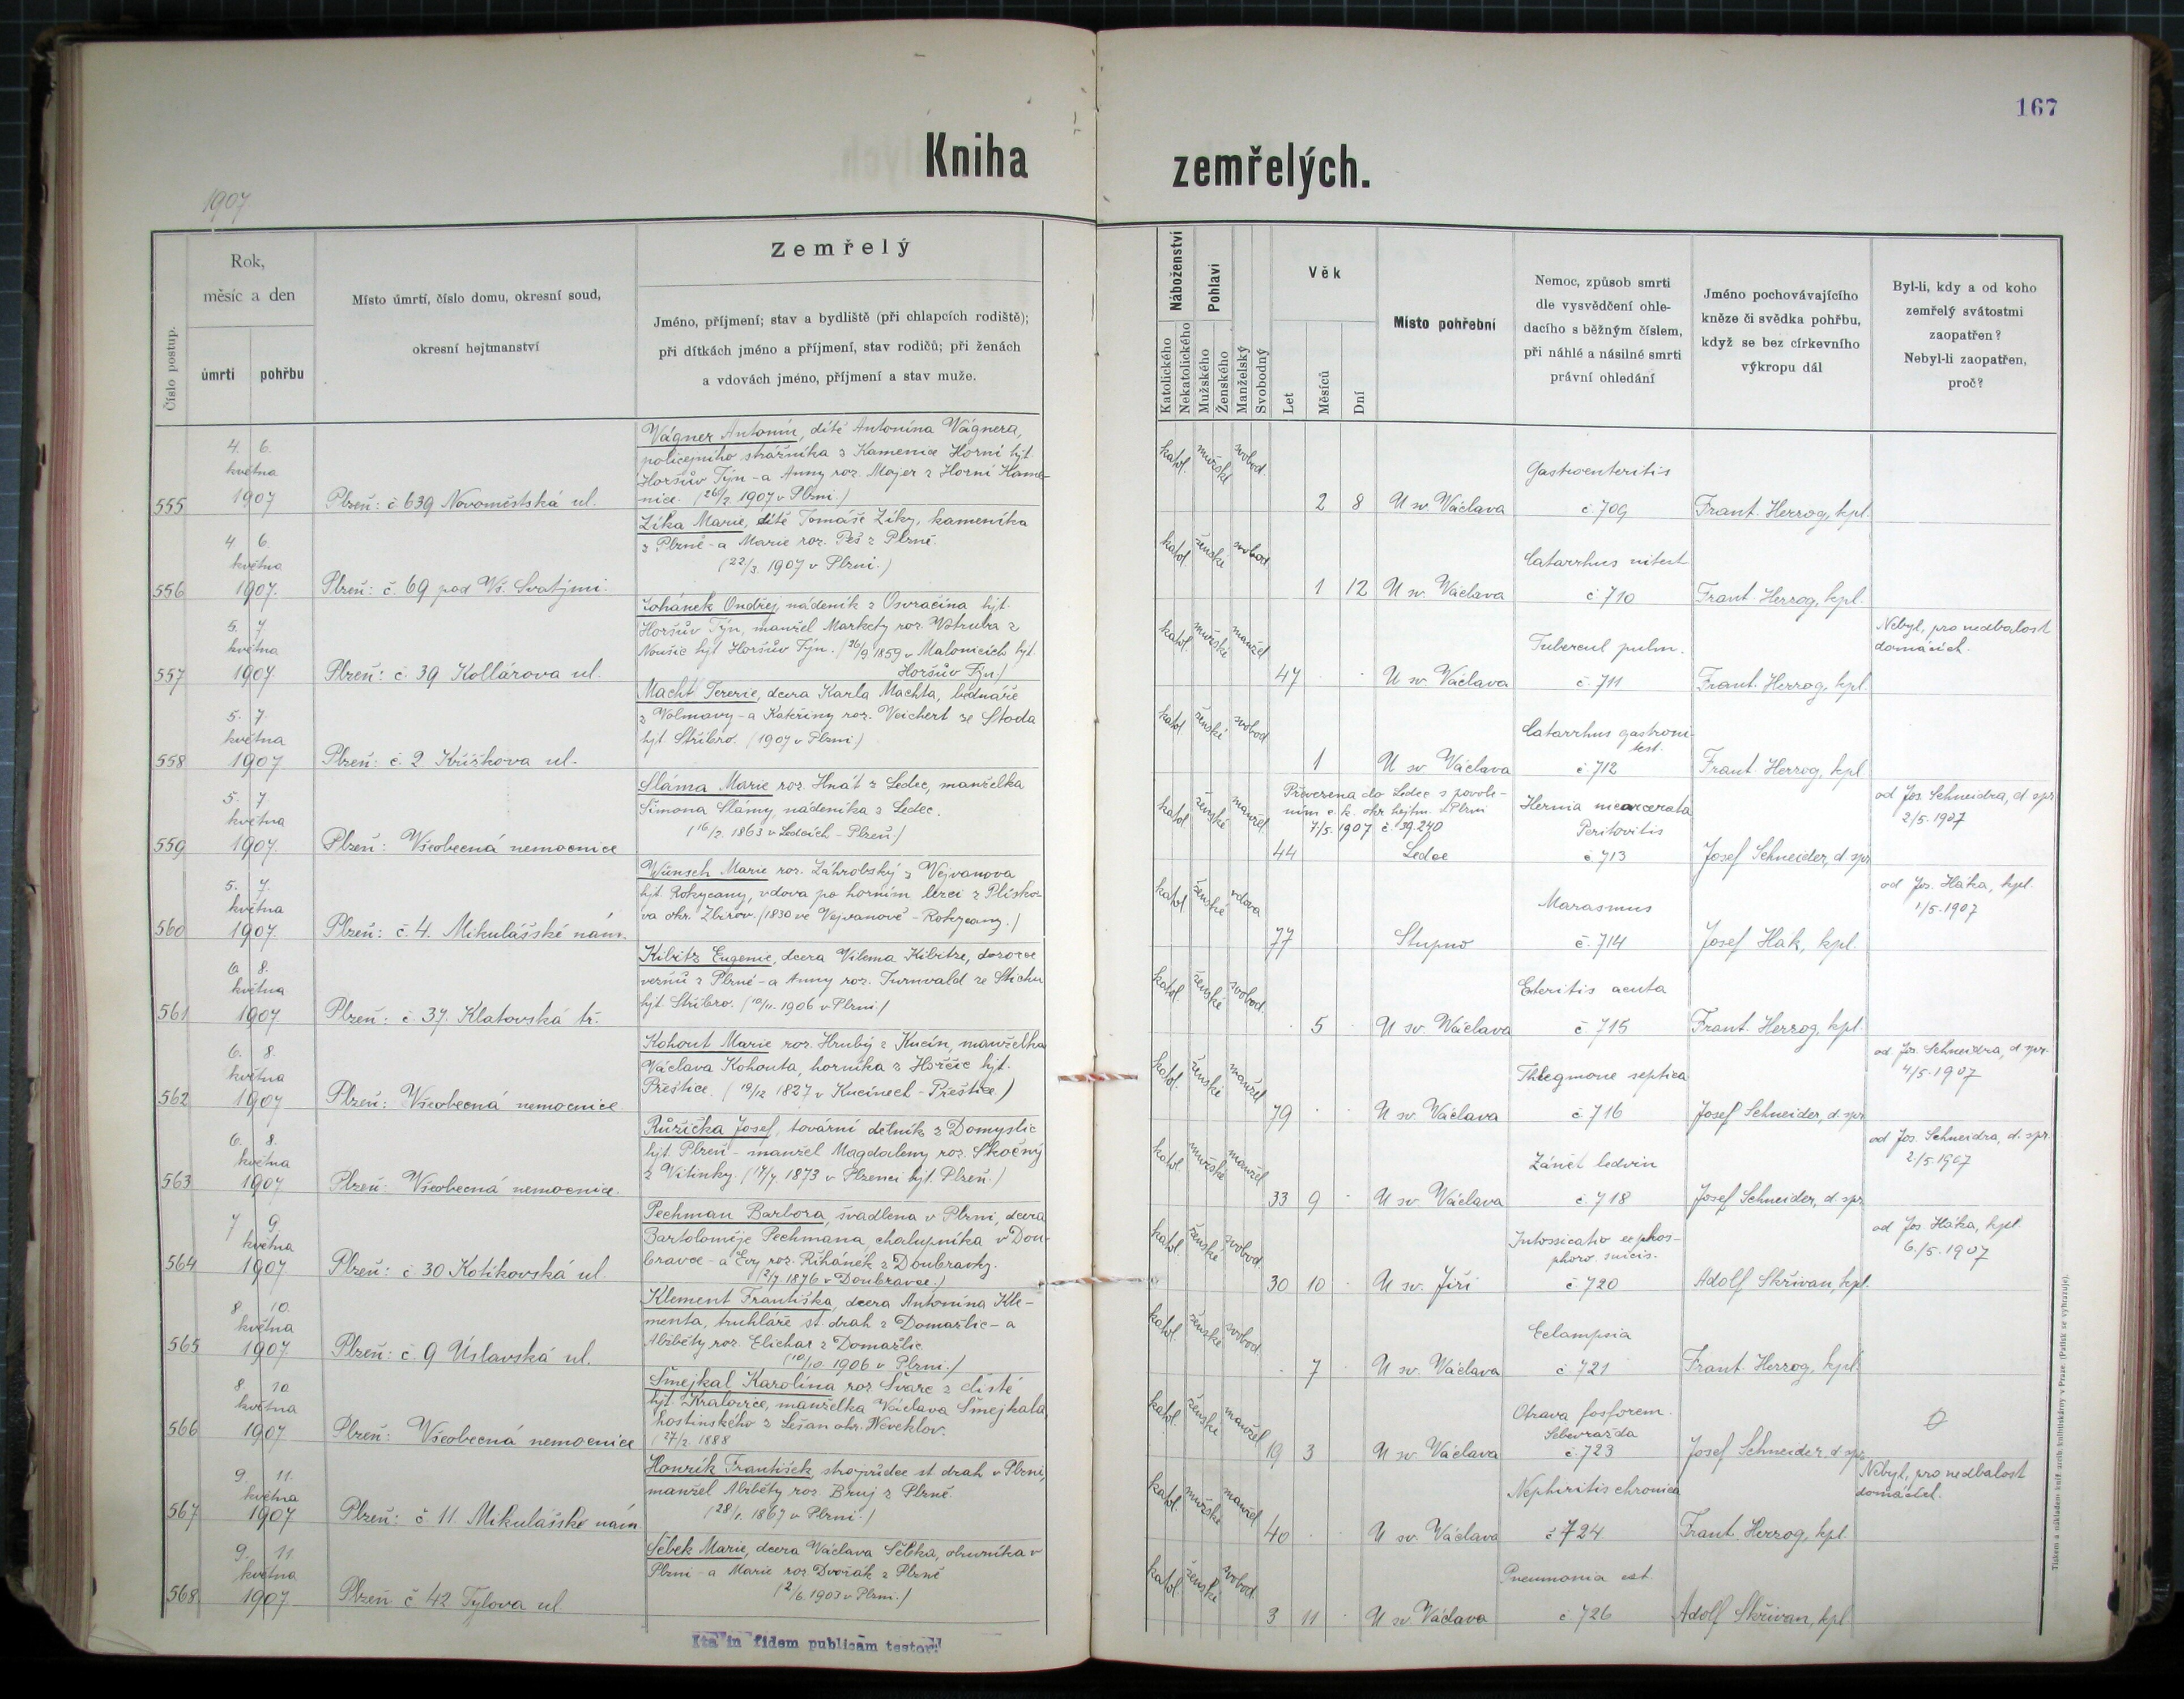 167
Kniha zemřelých.
1907
Číslo postup.
Rok,
měsíc a den
úmrtí
pohřbu
Místo úmrtí, číslo domu, okresní soud,
okresní hejtmanství
Zemřelý
Jméno, příjmení; stav a bydliště (při chlapcích rodiště);
při dítkách jméno a příjmení, stav rodičů; při ženách
a vdovách jméno, příjmení a stav muže.
Náboženství
Katolického
Nekatolického
Pohlaví
Mužského
Ženského
Manželský
Svobodný
Věk
Let
Měsíců
Dní
Místo pohřební
Nemoc, způsob smrti
dle vysvědčení ohle-
dacího s běžným číslem,
při náhlé a násilné smrti
právní ohledání
Jméno pochovávajícího
kněze či svědka pohřbu,
když se bez církevního
výkropu dál
Byl-li, kdy a od koho
zemřelý svátostmi
zaopatřen?
Nebyl-li zaopatřen,
proč?
555
4. 6.
května
1907
Plzeň: č 639 Novoměstská ul.
Vágner Antonín, dítě Antonína Vágnera,
policejního strážníka z Kamenice Horní hjt.
Horšův Týn - a Anny roz. Majer z Horní Kame-
nice. (26/2. 1907 v Plzni.)
katol.
mužské
svobod.
2 8
U sv. Václava
Gastroenteritis
č. 709
Frant. Herzog, kpl.
556
4. 6.
května
1907.
Plzeň: č. 69 pod Vš. Svatými.
Zíka Marie, dítě Tomáše Zíky, kameníka
z Plzně - a Marie roz. Peš z Plzně.
(22/3. 1907 v Plzni.)
katol.
ženské
svobod.
1 12
U sv. Václava
Catarrhus intest
č. 710
Frant. Herzog, kpl.
557
5. 7
května
1907.
Plzeň: č. 39 Kollárova ul.
Johánek Ondřej, nádeník z Osvračína hjt.
Horšův Týn, manžel Markety roz. Votruba z
Noušic hjt Horšův Týn. (26/9 1859 v Malonicích hjt.
Horšův Týn)
katol.
mužské
manžel
47
U sv. Václava
Tubercul pulm.
č. 711
Frant. Herzog, kpl.
Nebyl, pro nedbalost
domácích.
558
5. 7.
května
1907.
Plzeň: č. 2 Křižíkova ul.
Macht Terezie, dcera Karla Machta, bednáře
z Volmavy - a Kateřiny roz. Weichert ze Stoda
hjt. Stříbro. (1907 v Plzni)
katol.
ženské
svobod.
1
U sv. Václava
Catarrhus gastroin-
test.
č 712
Frant. Herzog, kpl
559
5. 7
května
1907.
Plzeň: Všeobecná nemocnice
Sláma Marie roz. Hnát z Ledec, manželka
Šimona Slámy, nádeníka z Ledec.
(16/2. 1863 v Ledcích - Plzeň.)
katol.
ženské
manžel
44
Převezena do Ledec s povole-
ním c. k. okr hejtm. v Plzni
7/5. 1907 č. 39.240
Ledce
Hernia incarcerata
Peritovitis
č 713
Josef Schneider, d. spr.
od Jos. Schneidra, d. spr.
2/5. 1907
560
5. 7.
května
1907.
Plzeň: č. 4. Mikulášské nám.
Wünsch Marie roz. Záhrobský z Vejvanova
hjt. Rokycany, vdova po horním lezci z Plísko-
va okr. Zbirov. (1830 ve Vejvanově - Rokycany.)
katol.
ženské
vdova
77
Stupno
Marasmus
č. 714
Josef Hák, kpl.
od Jos. Háka, kpl.
1/5. 1907
561
6. 8.
května
1907
Plzeň: č. 37. Klatovská tř.
Kibitz Eugenie, dcera Viléma Kibitze, dozorce
vězňů z Plzně - a Anny roz. Turnwald ze
hjt. Stříbro. (10/11. 1906 v Plzni.)
katol.
ženské
svobod.
5
U sv. Václava
Enteritis acuta
č. 715
Frant. Herzog, kpl.
562
6. 8.
května
1907
Plzeň: Všeobecná nemocnice
Kohout Marie roz. Hrubý z Kucín, manželka
Václava Kohouta, horníka z Hořčic hjt.
Přeštice. (19/12 1827 v Kucínech - Přeštice.)
katol.
ženské
manžel
79
U sv. Václava
Phlegmone septica
č 716
Josef Schneider, d. spr
od Jos. Schneidra, d. spr.
4/5. 1907
563
6. 8.
května
1907.
Plzeň: Všeobecná nemocnice.
Růžička Josef, tovární dělník z Domyslic
hjt. Plzeň - manžel Magdaleny roz. Skočný
z Vitinky. (17/7. 1873 v Plzenci hjt. Plzeň.)
katol.
mužské
manžel
33 9
U sv. Václava
Zánět ledvin
č. 718
Josef Schneider, d. spr
od Jos. Schneidra, d. spr.
2/5. 1907
564
7 9.
května
1907.
Plzeň: č 30 Kotíkovská ul.
Pechman Barbora, švadlena v Plzni, dcera
Bartoloměje Pechmana, chalupníka v Dou-
bravce - a Evy roz. Říhánek z Doubravky.
(2/7. 1876 v Doubravce.)
katol.
ženské
svobod.
30 10
U sv. Jiří
Intossicatio ee phos-
phoro suicis.
č. 720
Adolf Skřivan, kpl.
od Jos. Háka, kpl
6./5. 1907
565
8 10.
května
1907
Plzeň: č. 9 Úslavská ul.
Klement Františka, dcera Antonína Kle-
menta, truhláře st. drah z Domažlic - a
Alžběty roz. Elichar z Domažlic.
(10/10. 1906 v Plzni.)
katol.
ženské
svobod.
7
U sv. Václava
Eclampsia
č. 721
Frant. Herzog, kpl.
566
8. 10.
května
1907.
Plzeň: Všeobecná nemocnice
Smejkal Karolína roz Švarc z disté
hjt. Kralovice, manželka Václava Smejkala,
hostinského z Lešan okr. Neveklov.
(27/2. 1888
katol.
ženské
manžel
19 3
U sv. Václava
Otrava fosforem.
Sebevražda
č. 723
Josef Schneider, d. spr.
567
9. 11.
května
1907
Plzeň: č 11. Mikulášské nám
Honzík František, strojvůdce st. drah v Plzni,
manžel Alžběty roz. Bruj z Plzně.
(28/1. 1867 v Plzni.)
katol.
mužské
manžel
40
U sv. Václava
Nephiritis chronica
č 724
Frant. Herzog, kpl
Nebyl, pro nedbalost
domácích.
568
9. 11.
května
1907
Plzeň č 42 Tylova ul.
Šebek Marie, dcera Václava Šebka, obuvníka v
Plzni - a Marie roz Dvořák z Plzně
(2/6. 1903 v Plzni.)
katol.
ženské
svobod.
3 11
U sv. Václava
Pneumonia
č 726
Adolf Skřivan, kpl
Ita in fidem publicam testor:
Tiskem a nákladem kníž. arcib. knihtiskárny v Praze. (Patisk se vyhrazuje).